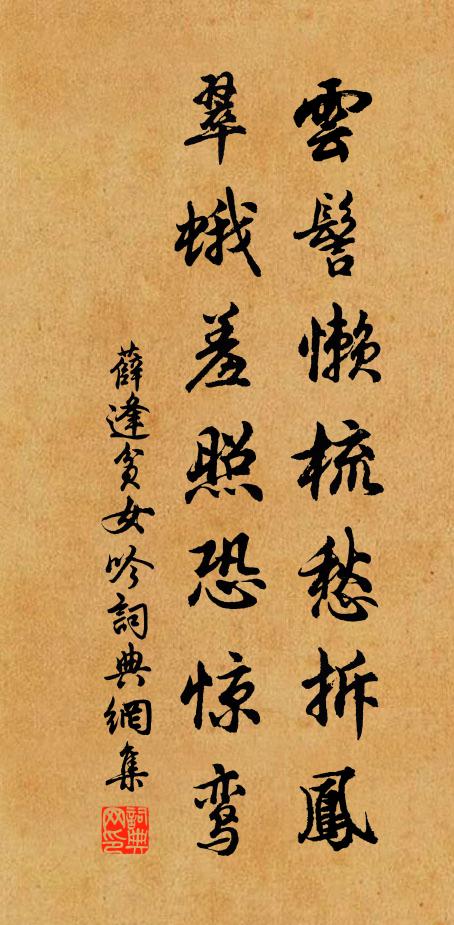 雲髻懶梳愁拆鳳
翠蛾羞照恐惊鸾
薛逢貧女吟詞典網集
詞典网印